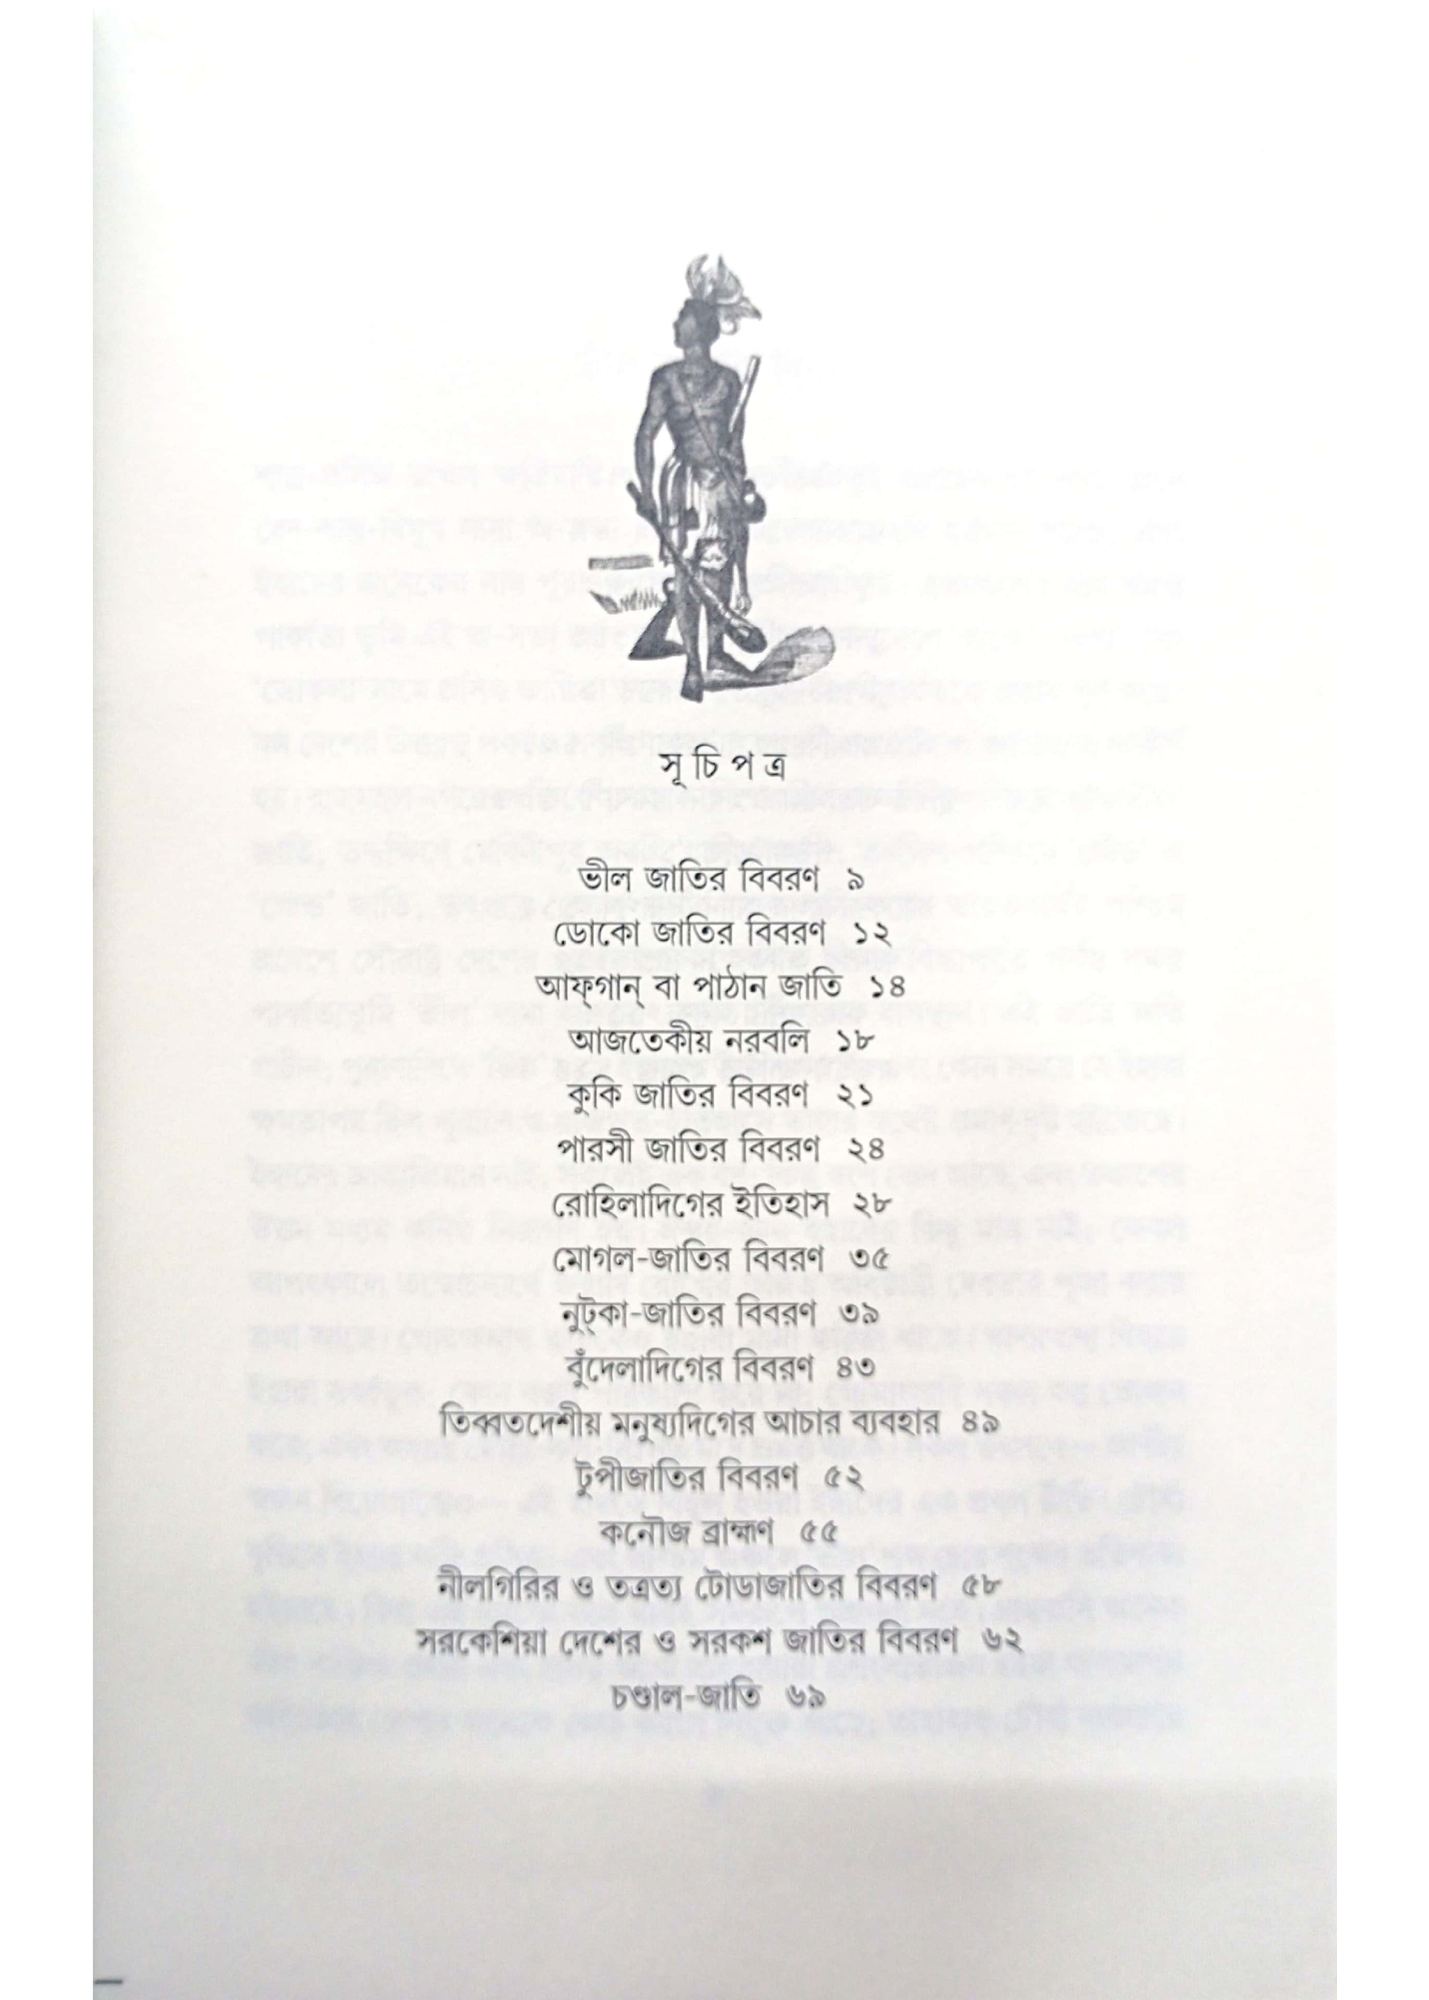 সূচিপত্র
ভীল জাতির বিবরণ ৯
ডোকো জাতির বিবরণ ১২
আফ্‌গান্ বা পাঠান জাতি ১৪
আজতেকীয় নরবলি ১৮
কুকি জাতির বিবরণ ২১
পারসী জাতির বিবরণ ২৪
রোহিলাদিগের ইতিহাস ২৮
মোগল-জাতির বিবরণ ৩৫
নুট্‌কা-জাতির বিবরণ ৩৯
বুঁদেলাদিগের বিবরণ ৪৩
তিব্বতদেশীয় মনুষ্যদিগের আচার ব্যবহার ৪৯
টুপীজাতির বিবরণ ৫২
কনৌজ ব্রাহ্মণ ৫৫
নীলগিরির ও তত্রত্য টোডাজাতির বিবরণ ৫৮
সরকেশিয়া দেশের ও সরকশ জাতির বিবরণ ৬২
চণ্ডাল-জাতি ৬৯